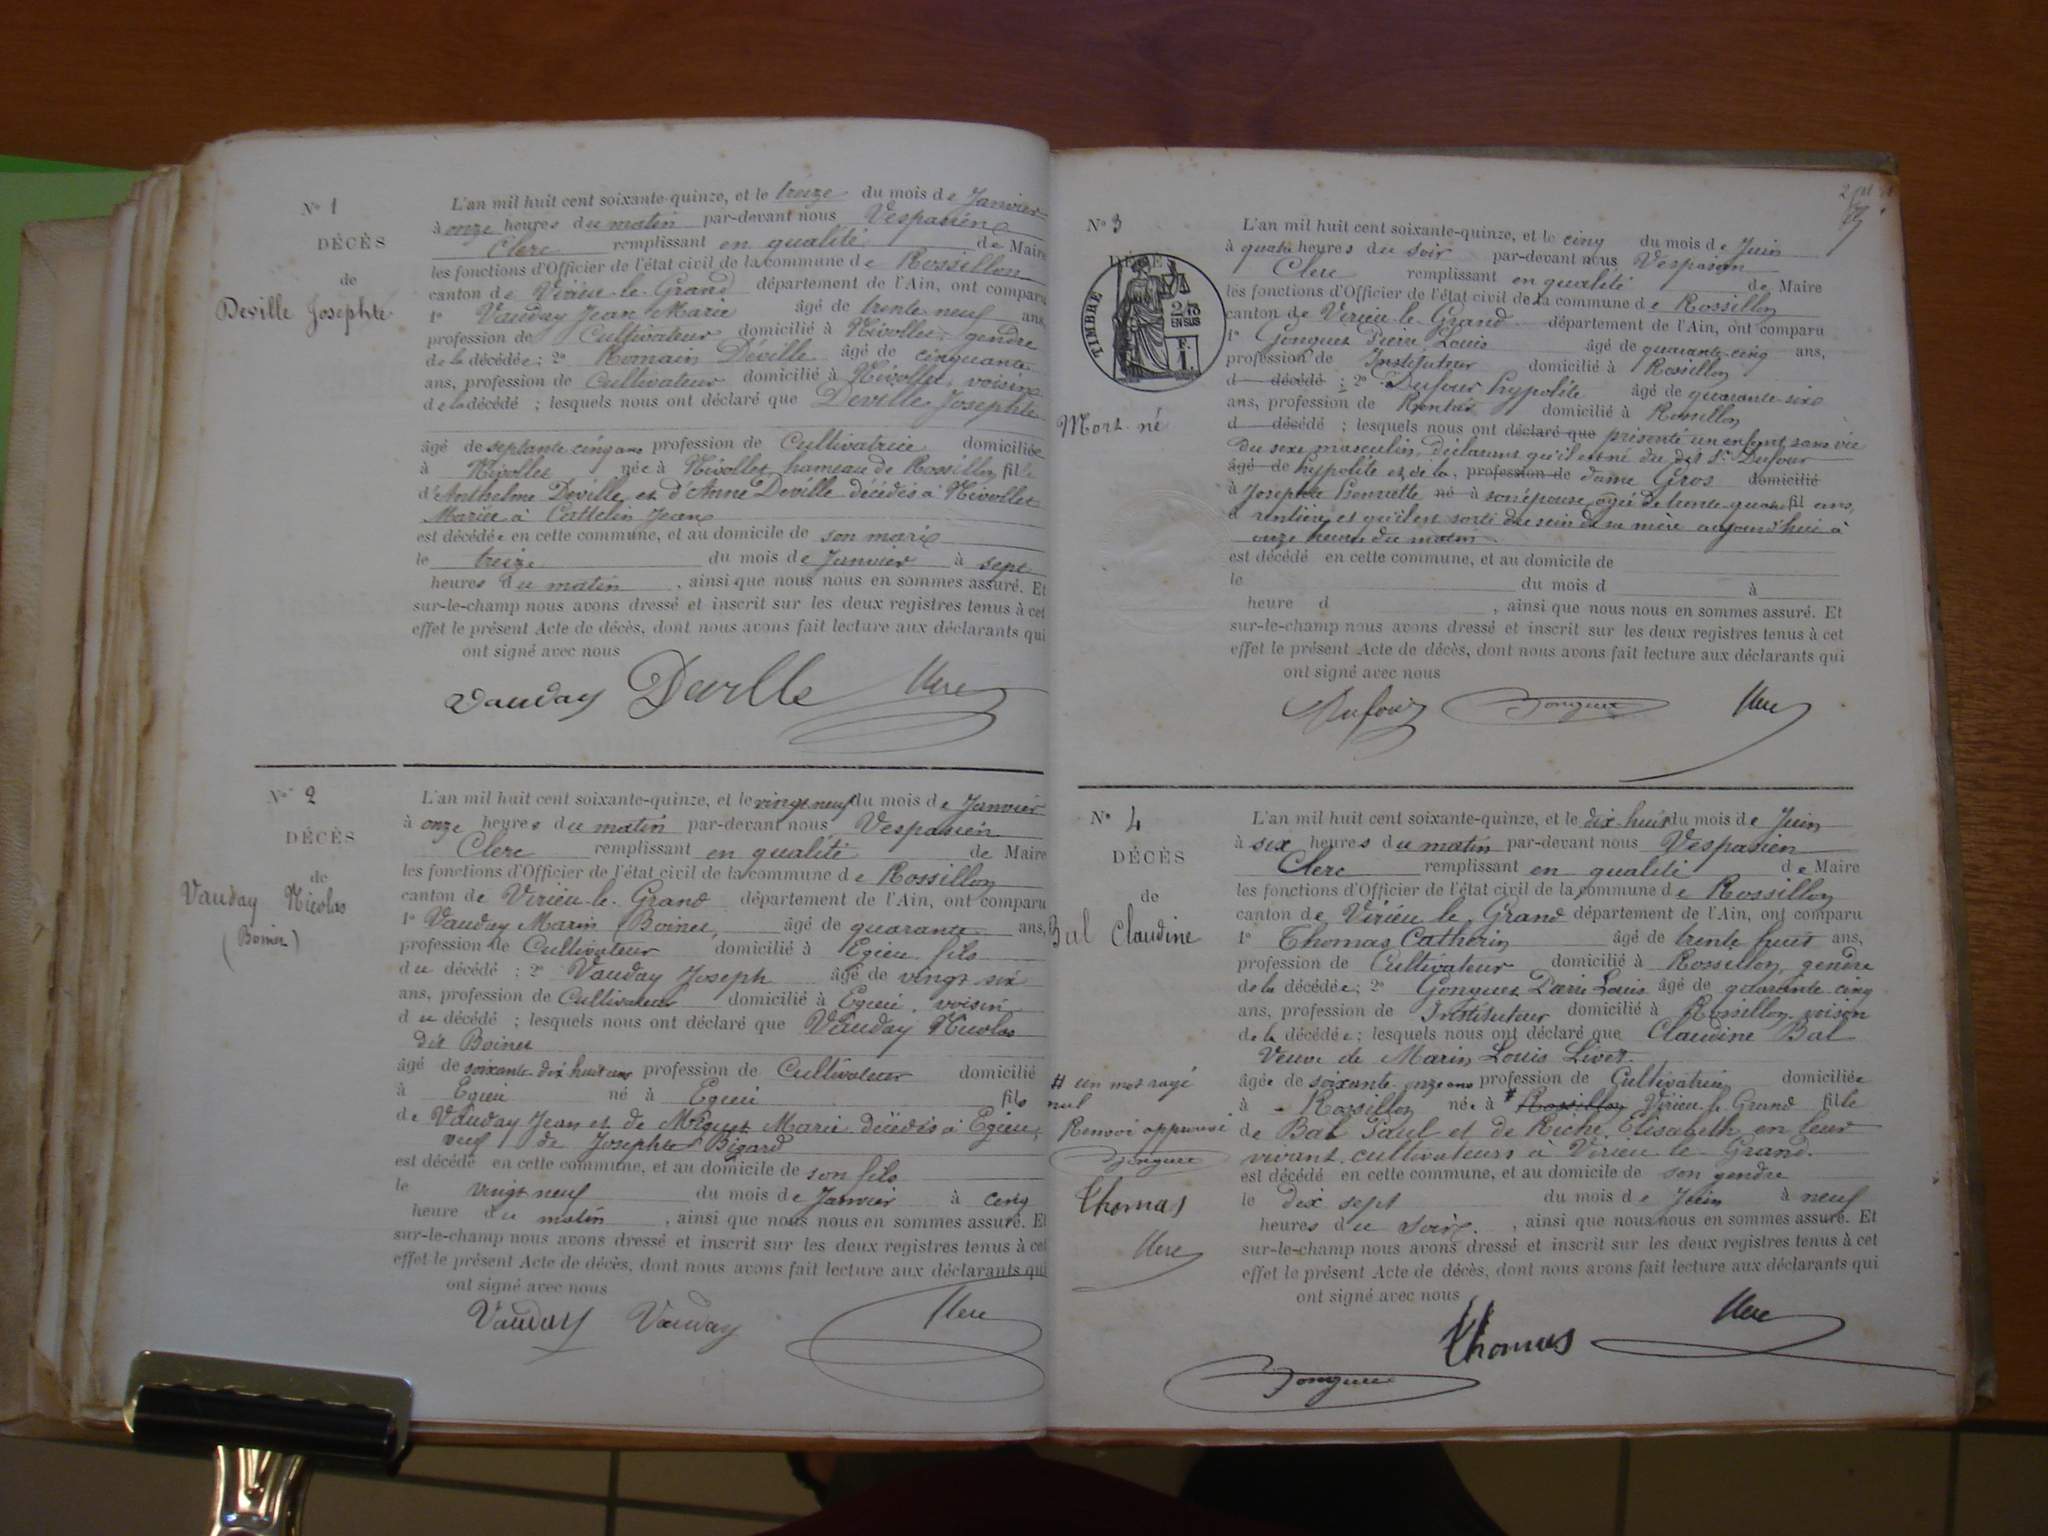 N° 1
DÉCÈS
de
Deville Josephte
L'an mil huit cent soixante-quinze, et le treize du mois de Janvier
à onze heures du matin par-devant nous Vespasien
Clerc remplissant en qualité de Maire
les fonctions d'Officier de l'état civil de la commune de Rossillon
canton de Virieu-le-Grand département de l'Ain, ont comparu
1° Vauday Jean Marie âgé de trente neuf ans,
profession de Cultivateur domicilié à Nivollet, gendre
de la décédée; 2° Romain Déville âgé de cinquante
ans, profession de Cultivateur domicilié à Nivollet, voisin
de la décédé ; lesquels nous ont déclaré que Deville Josephte
âgé de septante cinq ans profession de Cultivatrice domiciliée
à Nivollet née à Nivollet hameau de Rossillon fille
d'Anthelme Deville et d'Anne Deville décédés à Nivollet
Mariée à Cattelin Jean
est décédée en cette commune, et au domicile de son mari
le treize du mois de Janvier à sept
heures du matin , ainsi que nous nous en sommes assuré. Et
sur-le-champ nous avons dressé et inscrit sur les deux registres tenus à cet
effet le présent Acte de décès, dont nous avons fait lecture aux déclarants qui
ont signé avec nous
Vauday Deville Clerc
N° 2
DÉCÈS
de
Vauday Nicolas
(Boinet)
L'an mil huit cent soixante-quinze, et le vingt neuf du mois de Janvier
à onze heures du matin par-devant nous Vespasien
Clerc remplissant en qualité de Maire
les fonctions d'Officier de l'état civil de la commune de Rossillon
canton de Virieu-le-Grand département de l'Ain, ont comparu
1° Vauday Marin Boinet, âgé de quarante ans,
profession de Cultivateur domicilié à Egieu fils
du décédé ; 2° Vauday Joseph âgé de vingt six
ans, profession de Cultivateur domicilié à Egieu, voisin
du décédé ; lesquels nous ont déclaré que Vauday Nicolas
dit Boinet
âgé de soixante dix huit ans profession de Cultivateur domicilié
à Egieu né à Egieu fils
de Vauday Jean et de Miguet Marie décédés à Egieu,
veuf de Josephte Bigard
est décédé en cette commune, et au domicile de son fils
le vingt neuf du mois de Janvier à cinq
heure du matin , ainsi que nous nous en sommes assuré. Et
sur-le-champ nous avons dressé et inscrit sur les deux registres tenus à cet
effet le présent Acte de décès, dont nous avons fait lecture aux déclarants qui
ont signé avec nous
Vauday Vauday Clerc
N° 3
DÉCÈS
TIMBRE
2/10
EN SUS
F.
1.
Mort-né
L'an mil huit cent soixante-quinze, et le cinq du mois de Juin
à quatre heures du soir par-devant nous Vespasien
Clerc remplissant en qualité de Maire
les fonctions d'Officier de l'état civil de la commune de Rossillon
canton de Virieu-le-Grand département de l'Ain, ont comparu
1° Gonguet Pierre Louis âgé de quarante-cinq ans,
profession de Instituteur domicilié à Rossillon
d décédé ; 2° Dufour hypolite âgé de quarante-six
ans, profession de Rentier domicilié à Rossillon
d décédé ; lesquels nous ont déclaré que présenté un enfant sans vie
du sexe masculin, déclarant qu'il est né du dit Sr. Dufour
âgé de hypolite et de la profession de dame Gros domicilié
à Josephte Pierrette né à son épouse, agée de trente-quatre fil ans,
d rentière, et qu'il est sorti du sein de sa mère aujourd'hui à
onze heures du matin
est décédé en cette commune, et au domicile de
le du mois d à
heure d , ainsi que nous nous en sommes assuré. Et
sur-le-champ nous avons dressé et inscrit sur les deux registres tenus à cet
effet le présent Acte de décès, dont nous avons fait lecture aux déclarants qui
ont signé avec nous
Dufour Gonguet Clerc
N° 4
DÉCÈS
de
Bal Claudine
# un mot rayé
nul
Renvoi approuvé
Gonguet
Thomas
Clerc
L'an mil huit cent soixante-quinze, et le dix-huit du mois de Juin
à six heures du matin par-devant nous Vespasien
Clerc remplissant en qualité de Maire
les fonctions d'Officier de l'état civil de la commune de Rossillon
canton de Virieu le Grand département de l'Ain, ont comparu
1° Thomas Catherin âgé de trente huit ans,
profession de Cultivateur domicilié à Rossillon, gendre
de la décédée; 2° Gonguet Louis âgé de quarante cinq
ans, profession de Instituteur domicilié à Rossillon voisin
de la décédée; lesquels nous ont déclaré que Claudine Bal
Veuve de Marin Louis Livet
âgée de soixante-onze ans profession de Cultivatrice domiciliée
à Rossillon née à # Rossillon Virieu-le-Grand fille
de Bal Paul et de Riche Elisabeth en leur
vivant cultivateurs à Virieu-le-Grand.
est décédé en cette commune, et au domicile de son gendre
le dix sept du mois de Juin à neuf
heures du soir , ainsi que nous nous en sommes assuré. Et
sur-le-champ nous avons dressé et inscrit sur les deux registres tenus à cet
effet le présent Acte de décès, dont nous avons fait lecture aux déclarants qui
ont signé avec nous
Thomas Clerc
Gonguet